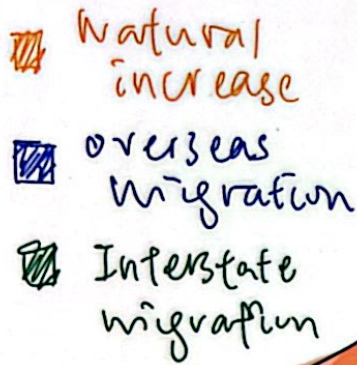 Natural
increase
overseas
migration
Interstate
migration